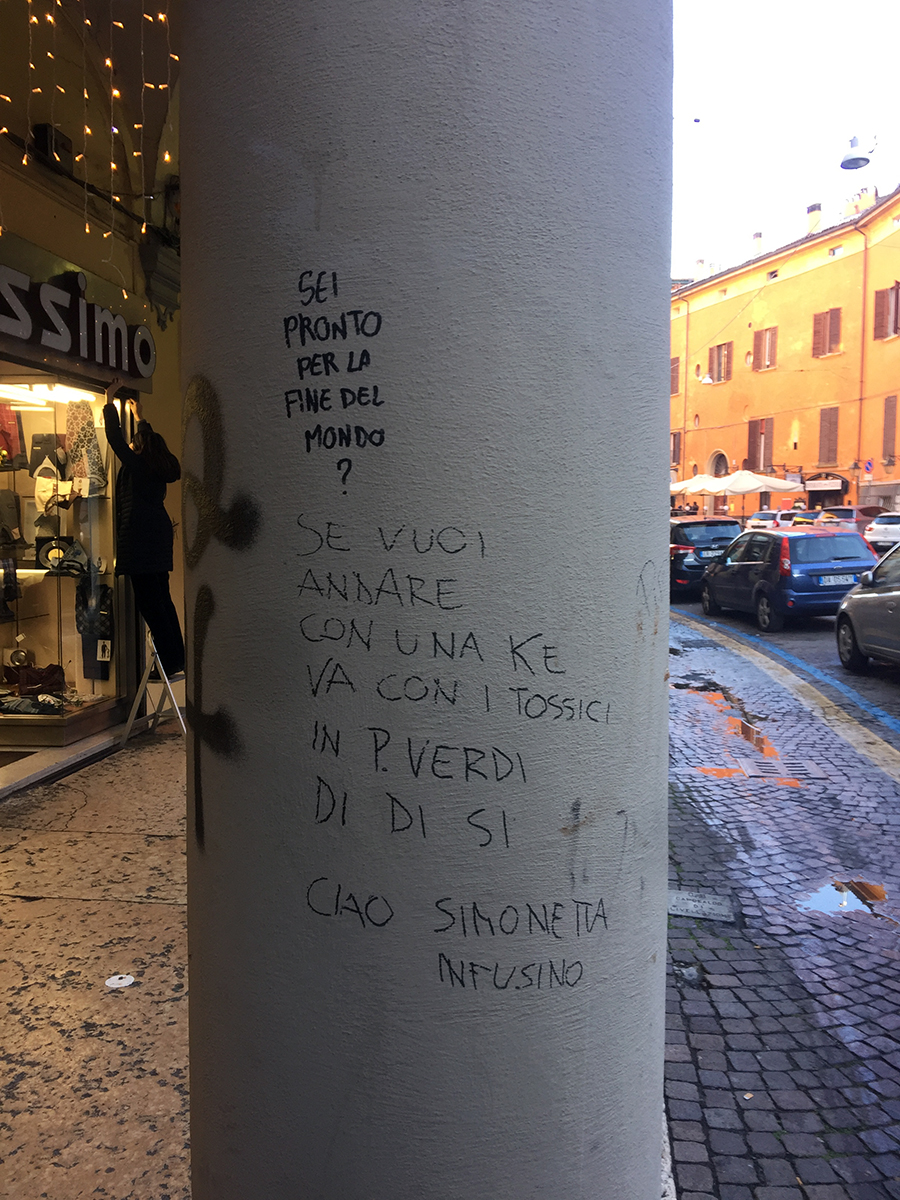 ssimo
SEI
PRONTO
PER LA
FINE DEL
MONDO
?
SE VUOI
ANDARE
CON UNA KE
VA CON I TOSSICI
IN P. VERDI
DI DI SI
CIAO SIMONETTA
INFUSINO